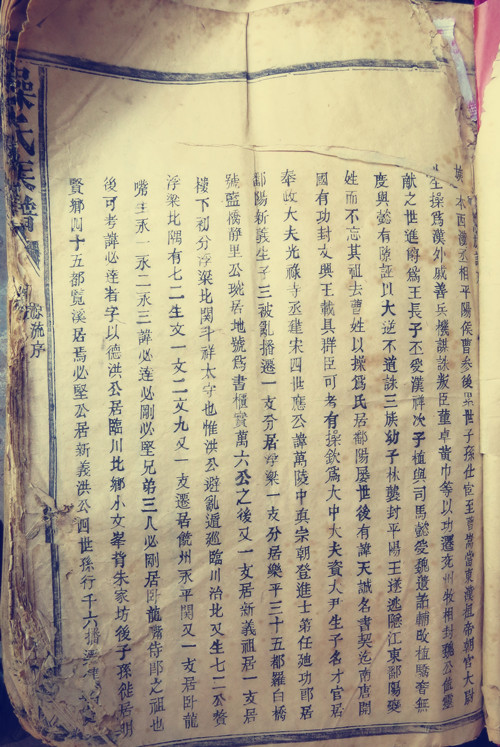 本西漢丞相平陽侯曹參後累世子孫仕宦至曹嵩當東漢祖帝朝官大尉
生操爲漢外戚善兵機謀誅叛臣董卓黃巾等以功遷兗州牧相封魏公植
獻之世進爵爲王長子丕受漢禪次子植與司馬懿受魏遺
慶與懿有隙誣以大逆不道誅三族幼子林襲封平陽王遂逃隱江東鄱陽變
姓而不忘其祖去曹姓以操爲氏居鄱陽屡世後有諱天誠名書契迄南唐開
國有功封文興王載具群臣可考有操欽爲大中大夫資大尹生子名才官居
奉政大夫光祿寺丞建宋四世應公諱萬陵中真宗朝登進士第任廸功郎居
鄱陽新義生子三被亂播遷一支分居浮梁一支分居樂平三十五都羅白橋
號監橋靜里公琬居地號爲書櫃實萬六公之後又一支居新義祖居一支居
樓下初分浮梁比閣斗祥太守也惟洪公避亂遁廵臨川治北又生七二公贅
浮梁北隅有七二生文一文二文九又一支遷居儋州永平關又一支居卧龍
嘴生永一永二永三諱必達必剛必堅兄弟三人必剛居卧龍嘴侍郎之祖也
後可考諱必達者字以德洪公居臨川北鄉小文峯背朱家坊後子孫徙居明
賢鄉四十五都覽溪居焉必堅公居新義洪公四世孫行千六播遷
操氏族譜
源流序